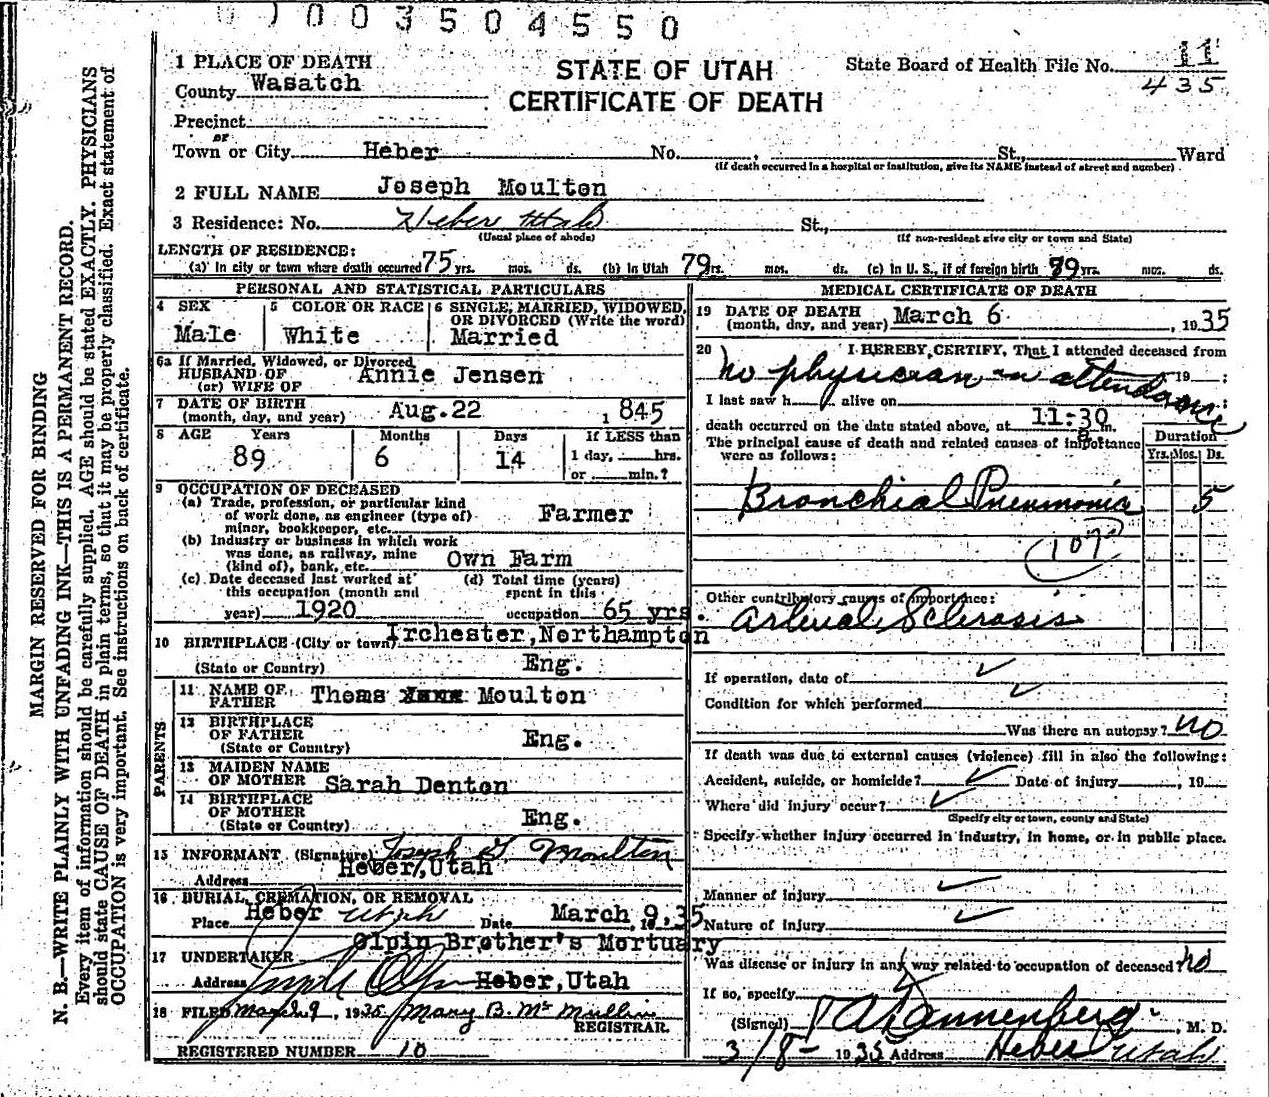 003504550
1 PLACE OF DEATH
STATE OF UTAH
CERTIFICATE OF DEATH
State Board of Health File No. 11
435
County Wasatch
Precinct
or
Town or City Heber No. , St., Ward
(If death occurred in a hospital or institution, give its NAME instead of street and number)
2 FULL NAME Joseph Moulton
3 Residence: No. Heber Utah St.,
(Usual place of abode) (If non-resident give city or town and State)
LENGTH OF RESIDENCE:
(a) In city or town where death occurred 75 yrs. mos. ds. (b) In Utah 79 yrs. mos. ds. (c) In U. S., if of foreign birth 79 yrs. mos. ds.
PERSONAL AND STATISTICAL PARTICULARS
4 SEX 5 COLOR OR RACE 6 SINGLE, MARRIED, WIDOWED, OR DIVORCED (Write the word)
Male White Married
6a If Married, Widowed, or Divorced
HUSBAND OF Annie Jensen
(or) WIFE OF
7 DATE OF BIRTH
(month, day, and year) Aug. 22 1845
8 AGE Years Months Days If LESS than
89 6 14 1 day, hrs.
or min.?
9 OCCUPATION OF DECEASED
(a) Trade, profession, or particular kind
of work done, as engineer (type of) Farmer
miner, bookkeeper, etc.
(b) Industry or business in which work
was done, as railway, mine
(kind of), bank, etc. Own Farm
(c) Date deceased last worked at (d) Total time (years)
this occupation (month and spent in this
year) 1920 occupation 65 yrs.
10 BIRTHPLACE (City or town) Irchester, Northampton
(State or Country) Eng.
PARENTS
11 NAME OF
FATHER Thoms Moulton
12 BIRTHPLACE
OF FATHER Eng.
(State or Country)
13 MAIDEN NAME
OF MOTHER Sarah Denton
14 BIRTHPLACE
OF MOTHER Eng.
(State or Country)
15 INFORMANT (Signature) Joseph Moulton
Address Heber, Utah
16 BURIAL, CREMATION, OR REMOVAL
Place Heber Utah Date March 9, 35
17 UNDERTAKER Olpin Brother's Mortuary
Address Heber, Utah
18 FILED March 9, 1935 Mary B. McMullin
REGISTRAR.
REGISTERED NUMBER 10
MEDICAL CERTIFICATE OF DEATH
19 DATE OF DEATH
(month, day, and year) March 6 , 1935
20 I HEREBY CERTIFY, That I attended deceased from
no physician in attendance 19 ;
I last saw h alive on
death occurred on the date stated above, at 11:30 a m.
The principal cause of death and related causes of importance
were as follows:
Duration
Yrs. Mos. Ds.
Bronchial Pneumonia 5
107
Other contributory causes of importance:
Arterial Sclerosis
If operation, date of ✓
Condition for which performed ✓
Was there an autopsy? no
If death was due to external causes (violence) fill in also the following:
Accident, suicide, or homicide? ✓ Date of injury , 19
Where did injury occur? ✓
(Specify city or town, county and State)
Specify whether injury occurred in industry, in home, or in public place.
Manner of injury ✓
Nature of injury ✓
Was disease or injury in any way related to occupation of deceased? no
If so, specify
(Signed) Dannenberg , M. D.
3/8 1935 Address Heber Utah
MARGIN RESERVED FOR BINDING
N. B.—WRITE PLAINLY WITH UNFADING INK—THIS IS A PERMANENT RECORD.
Every item of information should be carefully supplied. AGE should be stated EXACTLY. PHYSICIANS
should state CAUSE OF DEATH in plain terms, so that it may be properly classified. Exact statement of
OCCUPATION is very important. See instructions on back of certificate.